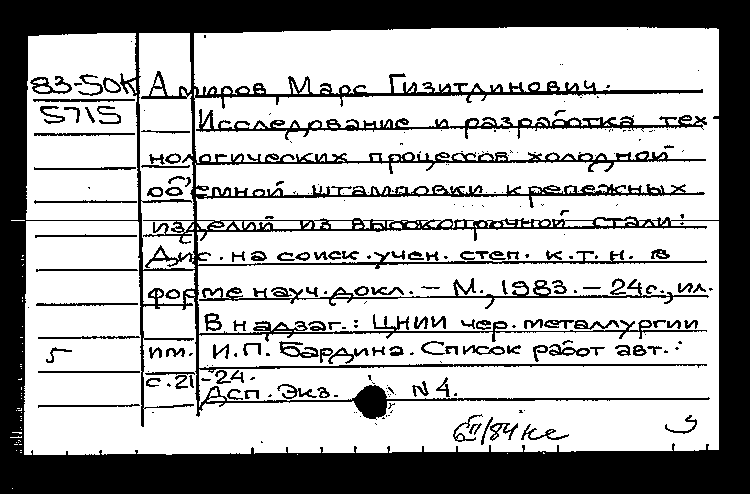 83-50К Амиров, Марс Гизитдинович.
5715 Исследование и разработка тех-
нологических процессов холодной
объемной штамповки крепежных
изделий из высокопрочной стали:
Дис. на соиск. учен. степ. к.т.н. в
форме науч. докл. – М., 1983. – 24с., ил.
В надзаг.: ЦНИИ чер. металлургии
5 им. И.П. Бардина. Список работ авт.:
с. 21-24.
Дсп. Экз. N4.